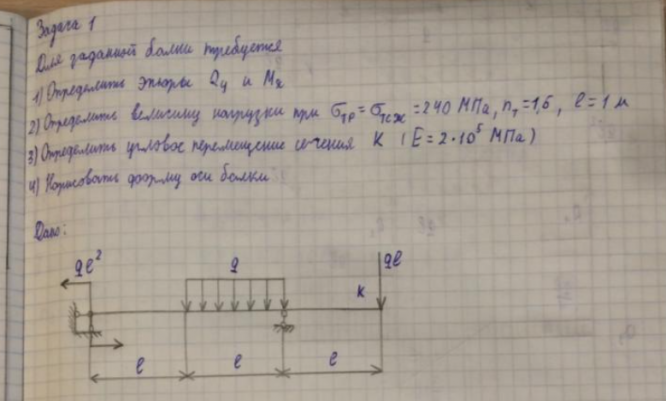 Задача 1
Для заданной балки требуется
1) Определить эпюры Qy и Mx
2) Определить величину нагрузки при σтр = σтсж = 240 МПа, nт = 1,5, l = 1 м
3) Определить угловое перемещение сечения K (E = 2·10⁵ МПа)
4) Нарисовать форму оси балки
Дано:
ql²
q
ql
K
l
l
l